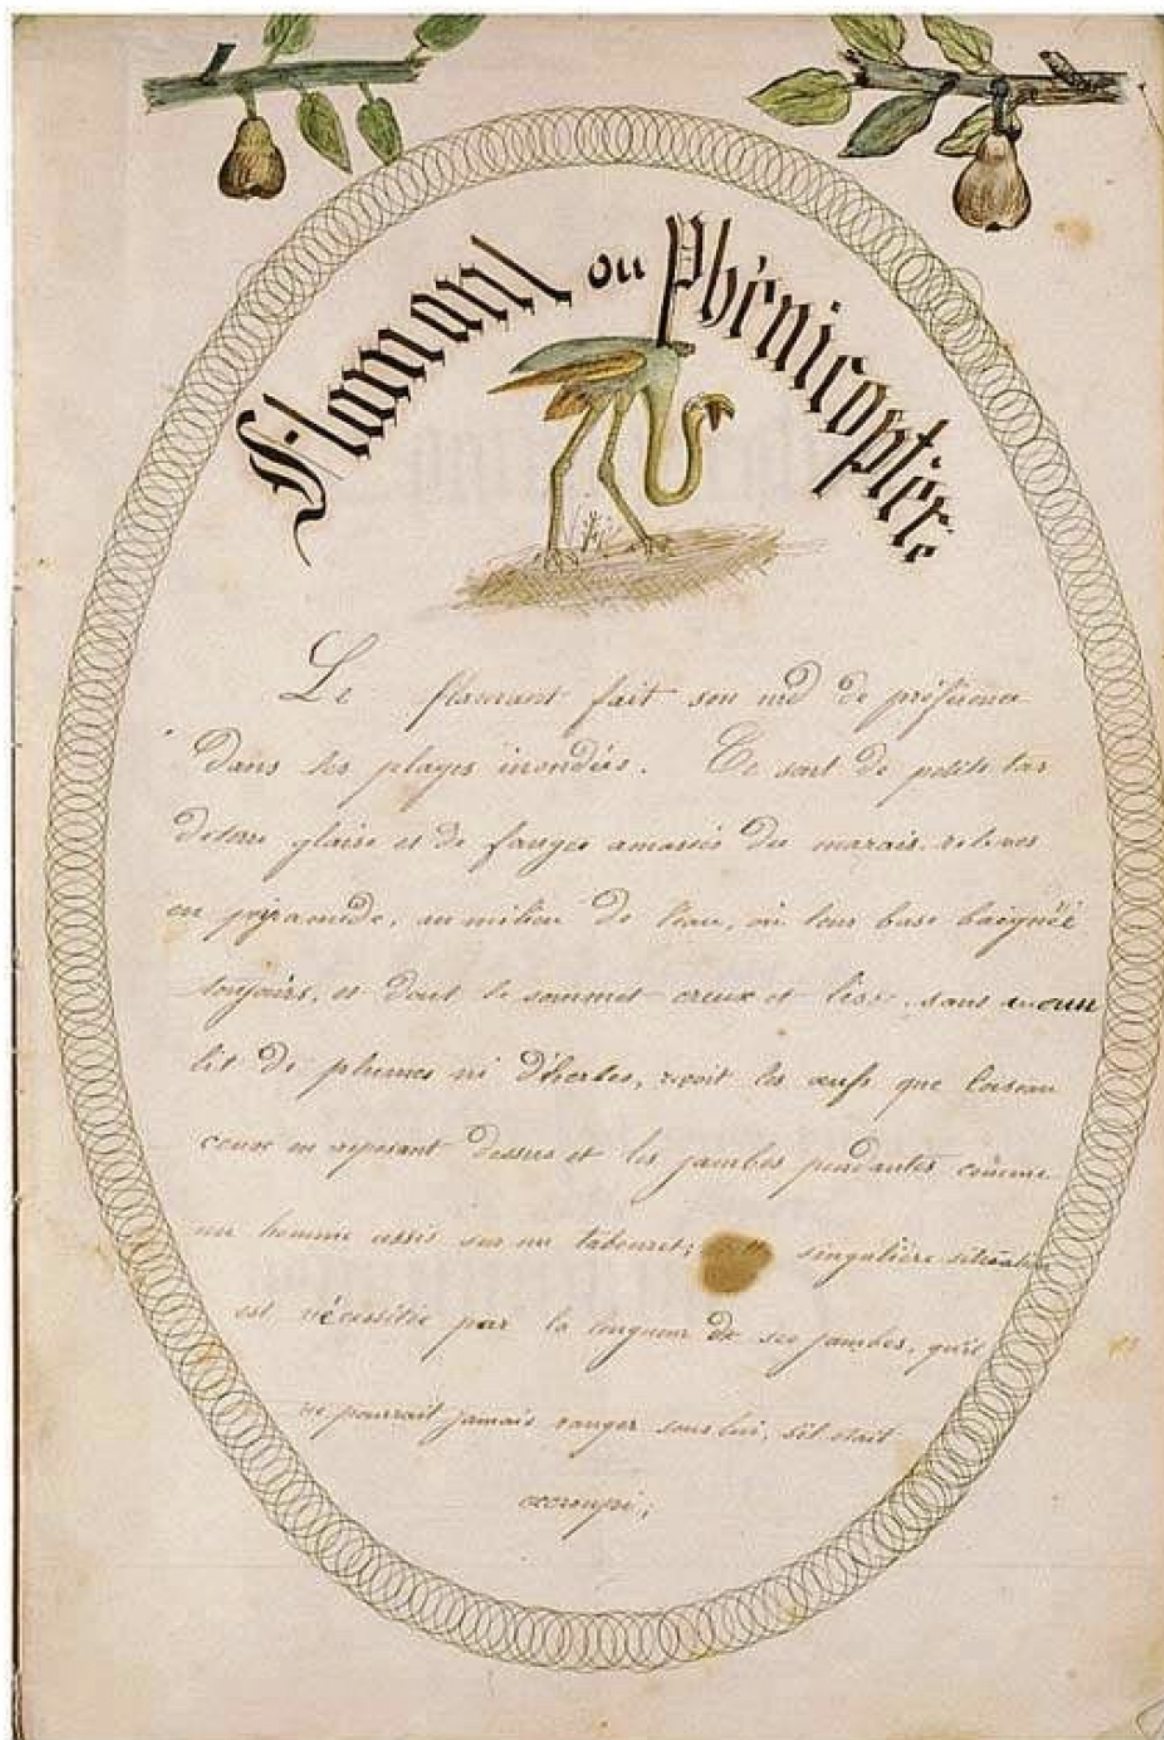 Flamant ou Phénicoptère
Le flamant fait son nid de préférence
Dans les plages inondées. Ce sont de petits tas
de terre glaise et de fanges amassés du marais relevés
en pyramide, au milieu de l'eau, où leur base baignée
toujours, et dont le sommet creux et lisse, sans aucun
lit de plumes ni d'herbes, reçoit les œufs que l'oiseau
couve en reposant dessus et les jambes pendantes comme
un homme assis sur un tabouret; singulière situation
est nécessitée par la longueur de ses jambes, qu'il
ne pourrait jamais ranger sous lui, s'il était
accroupi;